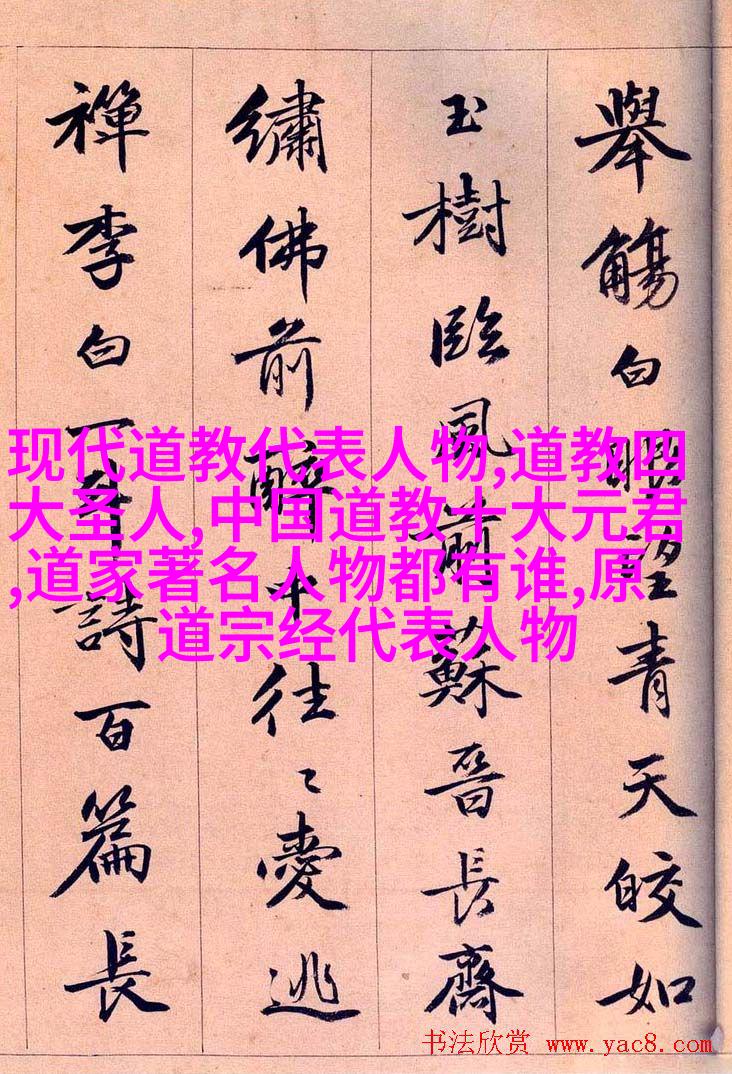 舉觴白眼望青天皎如
玉樹臨風前蘇晉長齋
繡佛前醉中往〻愛逃
禪李白一斗詩百篇長
现代道教代表人物,道教四
大圣人,中国道教十大元君
,道家著名人物都有谁,原
道宗经代表人物
书法欣赏 www.yac8.com